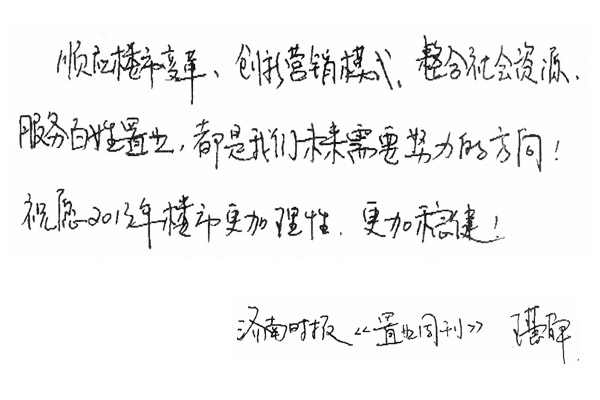 顺应楼市变革、创新营销模式、整合社会资源、
服务百姓置业,都是我们未来需要努力的方向!
祝愿2013年楼市更加理性、更加稳健!
济南时报《置业周刊》